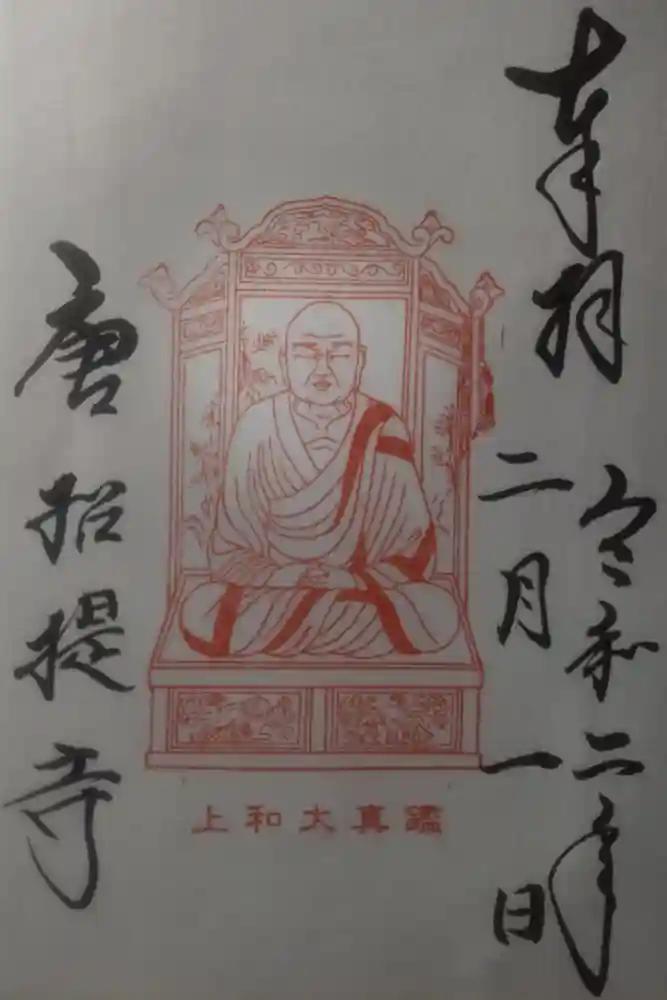 奉拝
令和二年
二月一日
鑑真大和上
唐招提寺